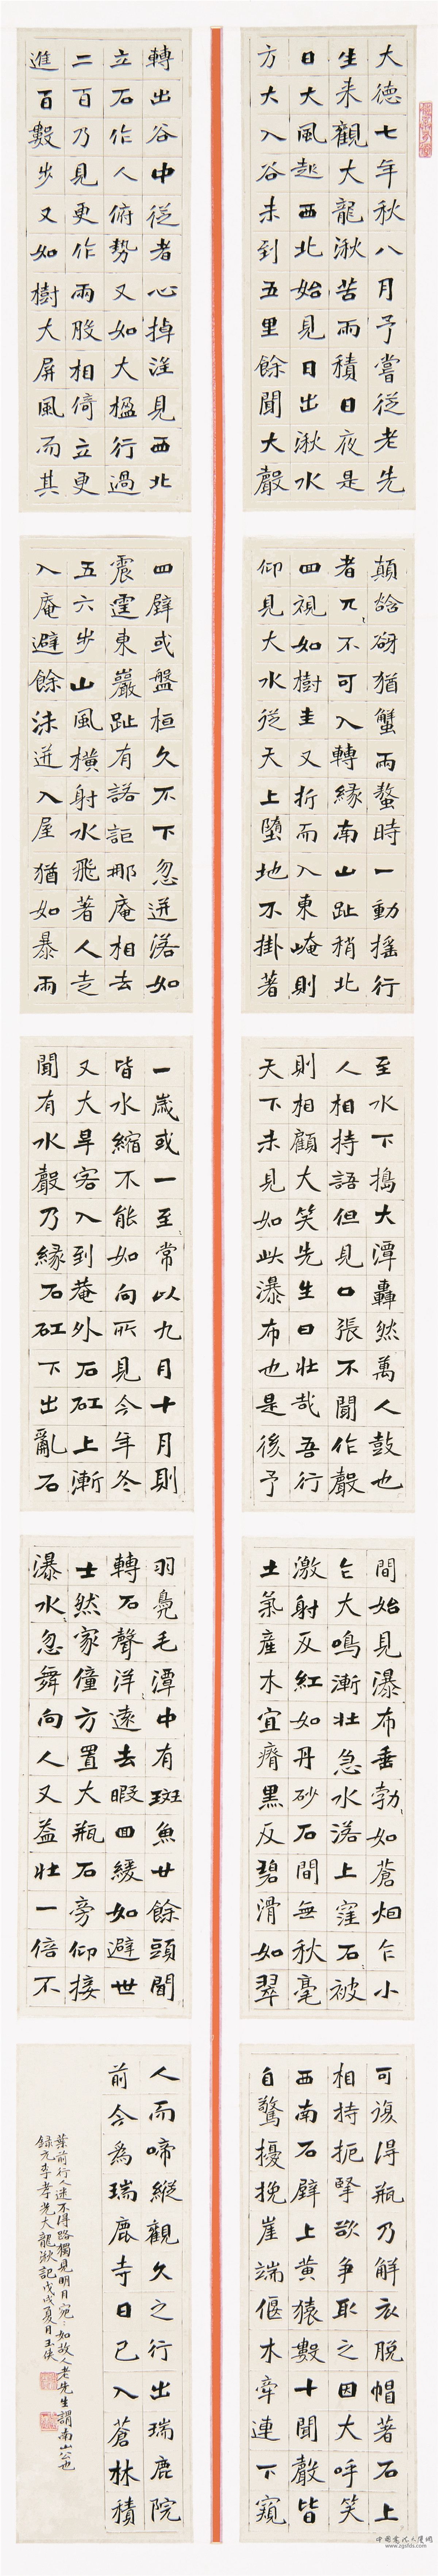 大德七年秋八月予嘗從老先
生来觀大龍湫苦雨積日夜是
日大風起西北始見日出湫水
方大入谷未到五里餘聞大聲
轉出谷中從者心掉滛見西北
立石作人俯勢又如大楹行過
二百乃見更作兩股相倚立更
進百數步又如樹大屏風而其
顛谽谺猶蟹兩螯時一動揺行
者兀不可入轉緣南山趾稍北
四視如樹圭又折而入東崦則
仰見大水從天上墮地不掛著
四壁或盤桓久不下忽迸落如
震霆東巖趾有諾詎那庵相去
五六步山風橫射水飛著人走
入庵避餘沫迸入屋猶如暴雨
至水下搗大潭轟然萬人鼓也
人相持語但見口張不聞作聲
則相顧大笑先生曰壯哉吾行
天下未見如此瀑布也是後予
一歲或一至常以九月十月則
皆水縮不能如向所見今年冬
又大旱客入到菴外石矼上漸
聞有水聲乃緣石矼下出亂石
間始見瀑布垂勃〻如蒼烟乍小
乍大鳴漸壯急水落上窪石被
激射反紅如丹砂石間無秋毫
土氣產木宜瘠黑反碧滑如翠
羽鳧毛潭中有斑魚廿餘頭聞
轉石聲洋〻遠去暇回緩如避世
士然家僮方置大瓶石旁仰接
瀑水〻忽舞向人又益壯一倍不
可復得瓶乃解衣脫帽著石上
相持扼掔欲爭取之因大呼笑
西南石壁上黃猿數十聞聲皆
自驚擾挽崖端偃木牽連下窺
人而啼縱觀久之行出瑞鹿院
前今為瑞鹿寺日已入蒼林積
葉前行人迷不得路獨見明月宛〻如故人老先生謂南山公也
録元李孝光大龍湫記戊戌夏月玉俠